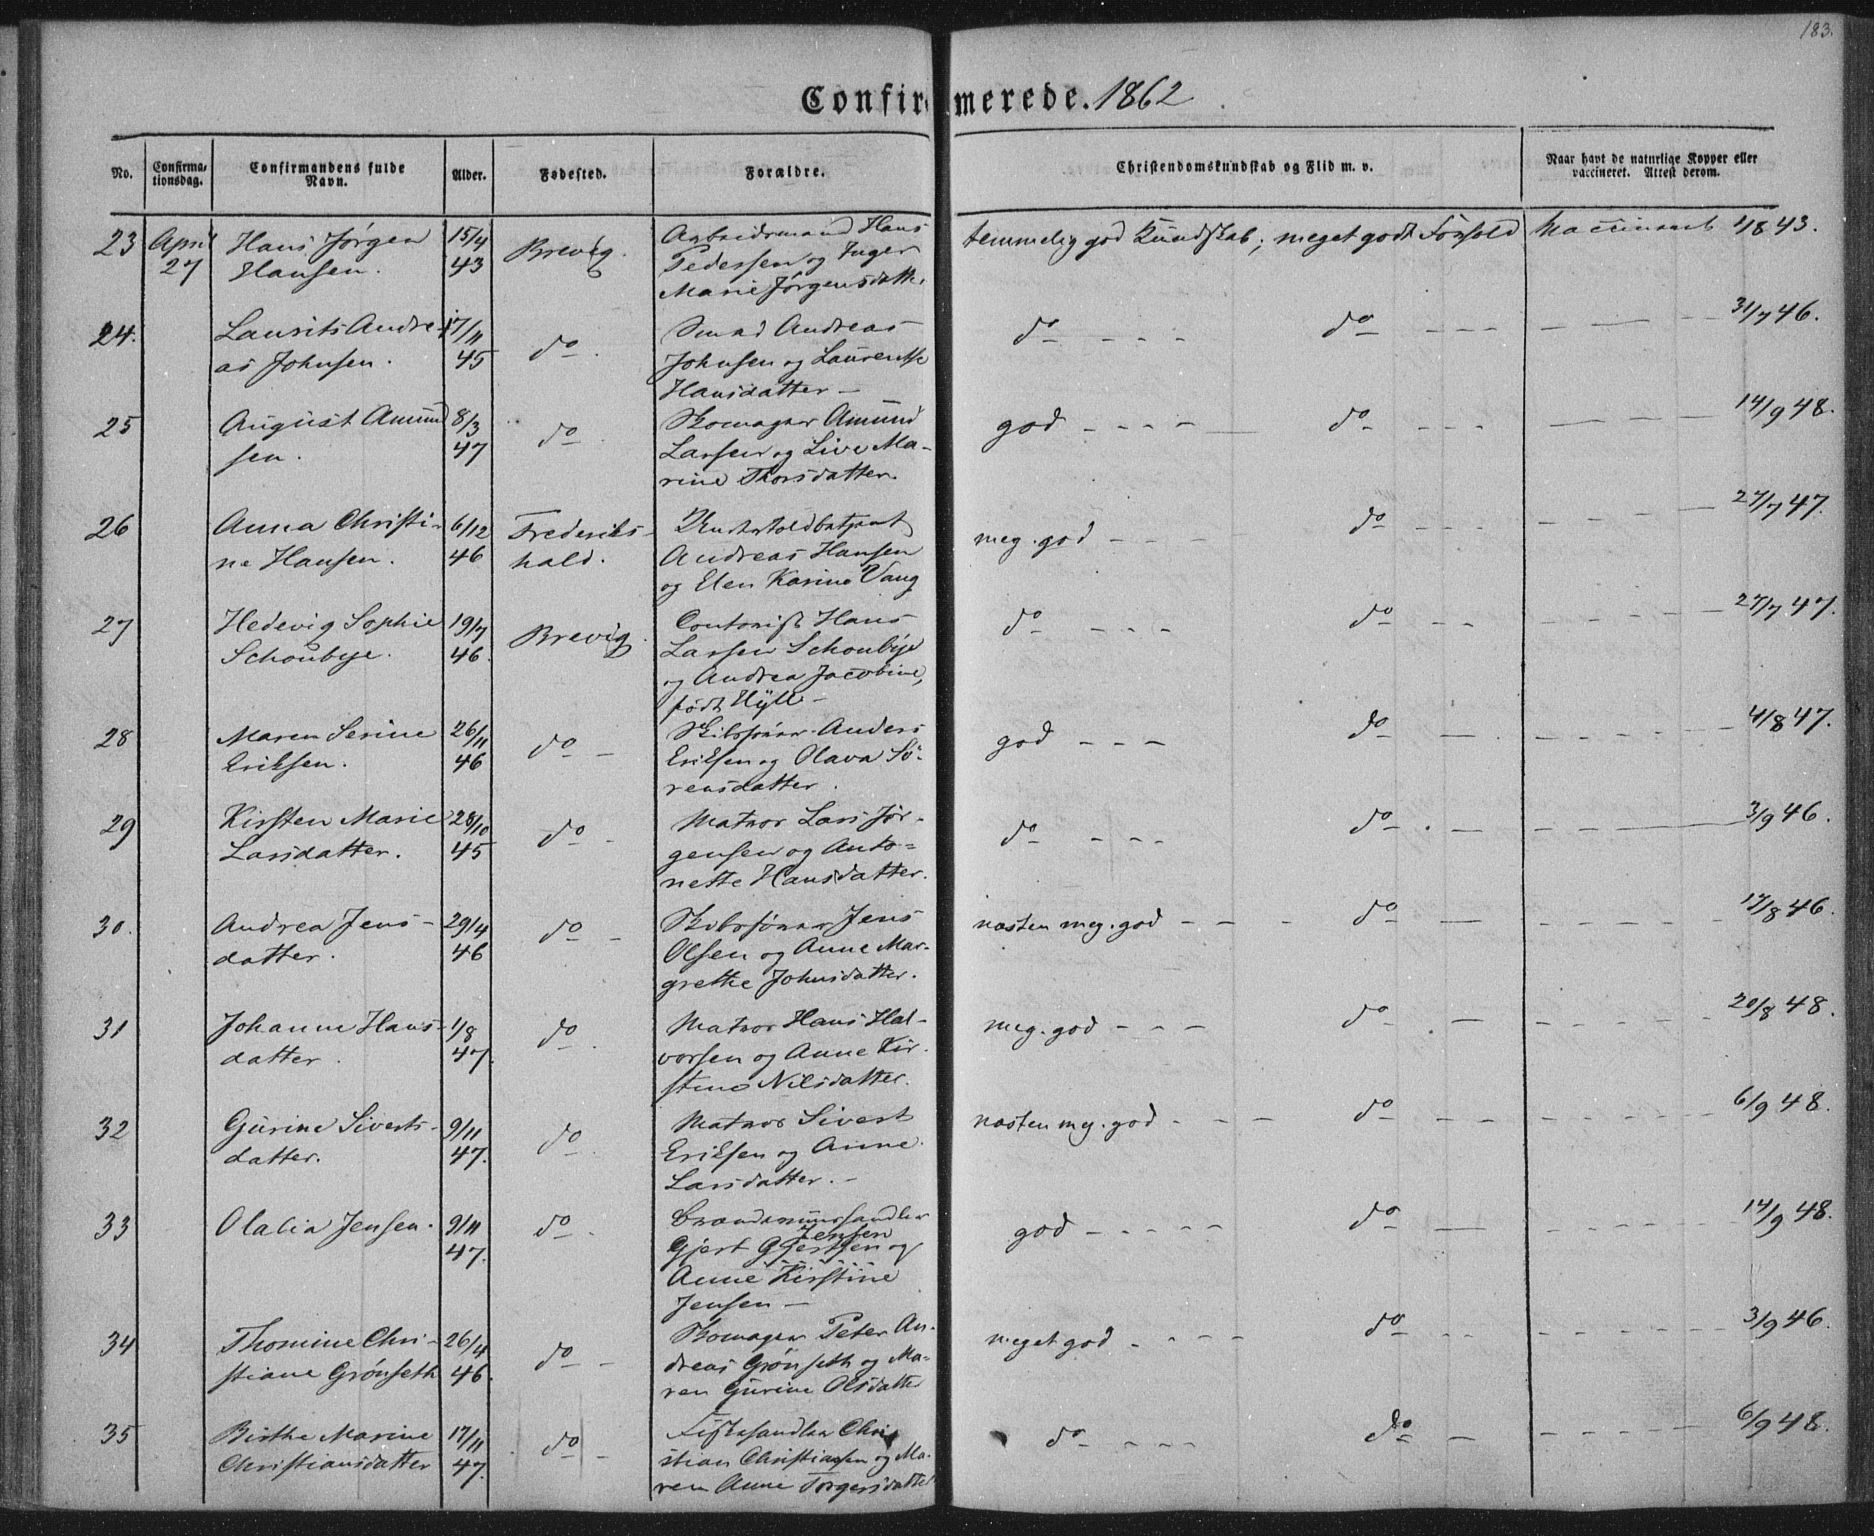 183.
Confirmerede. 1862
No. Confirmationsdag. Confirmandens fulde Navn. Alder. Fødested. Forældre. Christendomskundskab og Flid m. v. Naar havt de naturlige Kopper eller vaccineret. Attest derom.
23 April 15/4 Arbeidsmand Hans
27 Hans Jørgen 43 Brevig. Pedersen og Inger temmelig god Kundskab; meget godt Forhold Vaccineret 4/8 43.
Hansen. Marie Jørgensdatt.
24. Laurits Andre- 17/11 do Smed Andreas do do 31/7 46.
as Johnsen. 45 Johnsen og Laurentse
Hansdatter –
25 August Amund 8/3 do Skomager Amund god do 14/9 48.
sen. 47 Larsen og Live Ma-
rine Thorsdatter.
26 Anna Christi- 6/12 Frederiks- meg. god do 27/7 47.
ne Hansen. 46 hald. Andreas Hansen
og Elen Karine Vang
27 Hedevig Sophie 19/7 Brevig. Contorist Hans do do 27/7 47.
Schoubye. 46. Larsen Schoubye
og Andrea Jacobine,
født Hyll –
28 Maren Serine 26/11 do Skibstømr. Anders god do 4/8 47.
Eriksen. 46 Eriksen og Olava Sö-
rensdatter.
29 Kirsten Marie 28/10 do Matros Lars Jør- do do 3/9 46.
Larsdatter. 45 gensen og Anto-
nette Hansdatter.
30. Andrea Jens- 29/4 do Skibstømr Jens næsten meg. god do 17/8 46.
datter. 46 Olsen og Anne Mar-
grethe Johnsdatter.
31 Johanne Hans- 1/8 do Matros Hans Hal- meg. god do 20/8 48.
datter. 47. vorsen og Anne Kir-
stine Nilsdatter.
32 Gurine Siverts- 9/11 do Matros Sivert næsten meg. god do 6/9 48.
datter. 47. Eriksen og Anne
Larsdatter. –
33 Olalia Jensen. 9/11 do god do 14/9 48.
47. Jensen
Gjert Gjertsen og
Anne Kirstine
Jensen –
34 Thomine Chri- 26/4 do Skomager Peter An- meget god do 3/9 46.
stiane Grønseth 46. dreas Grønseth og Ma-
ren Gurine Olsdatter
35 Birthe Marine 17/11 do Fiskehandler Chri do do 6/9 48.
Christiansdatter 47. stian Christiansen og Ma-
ren Anne Torgersdatter